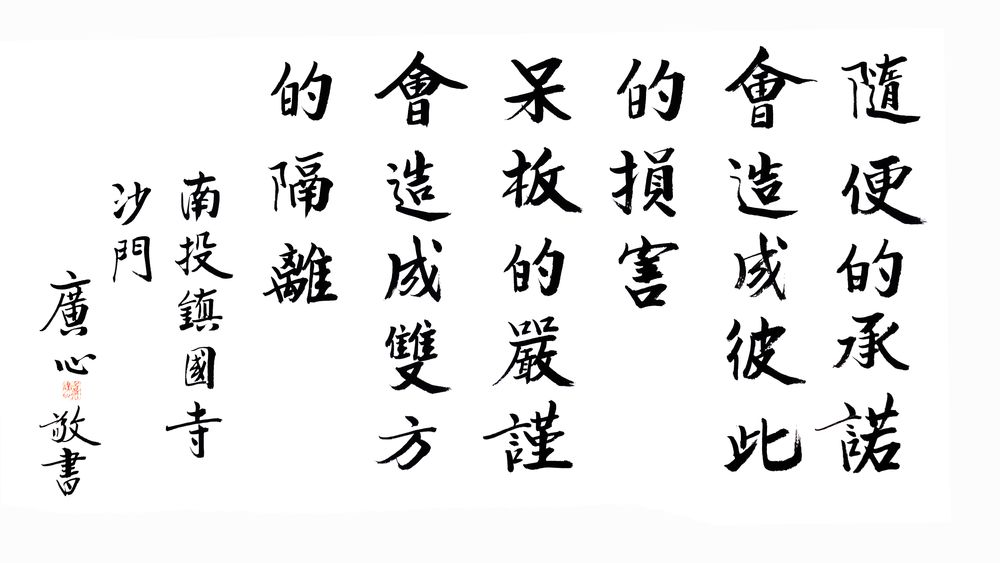 隨便的承諾
會造成彼此
的損害
呆板的嚴謹
會造成雙方
的隔離
南投鎮國寺
沙門
廣心敬書